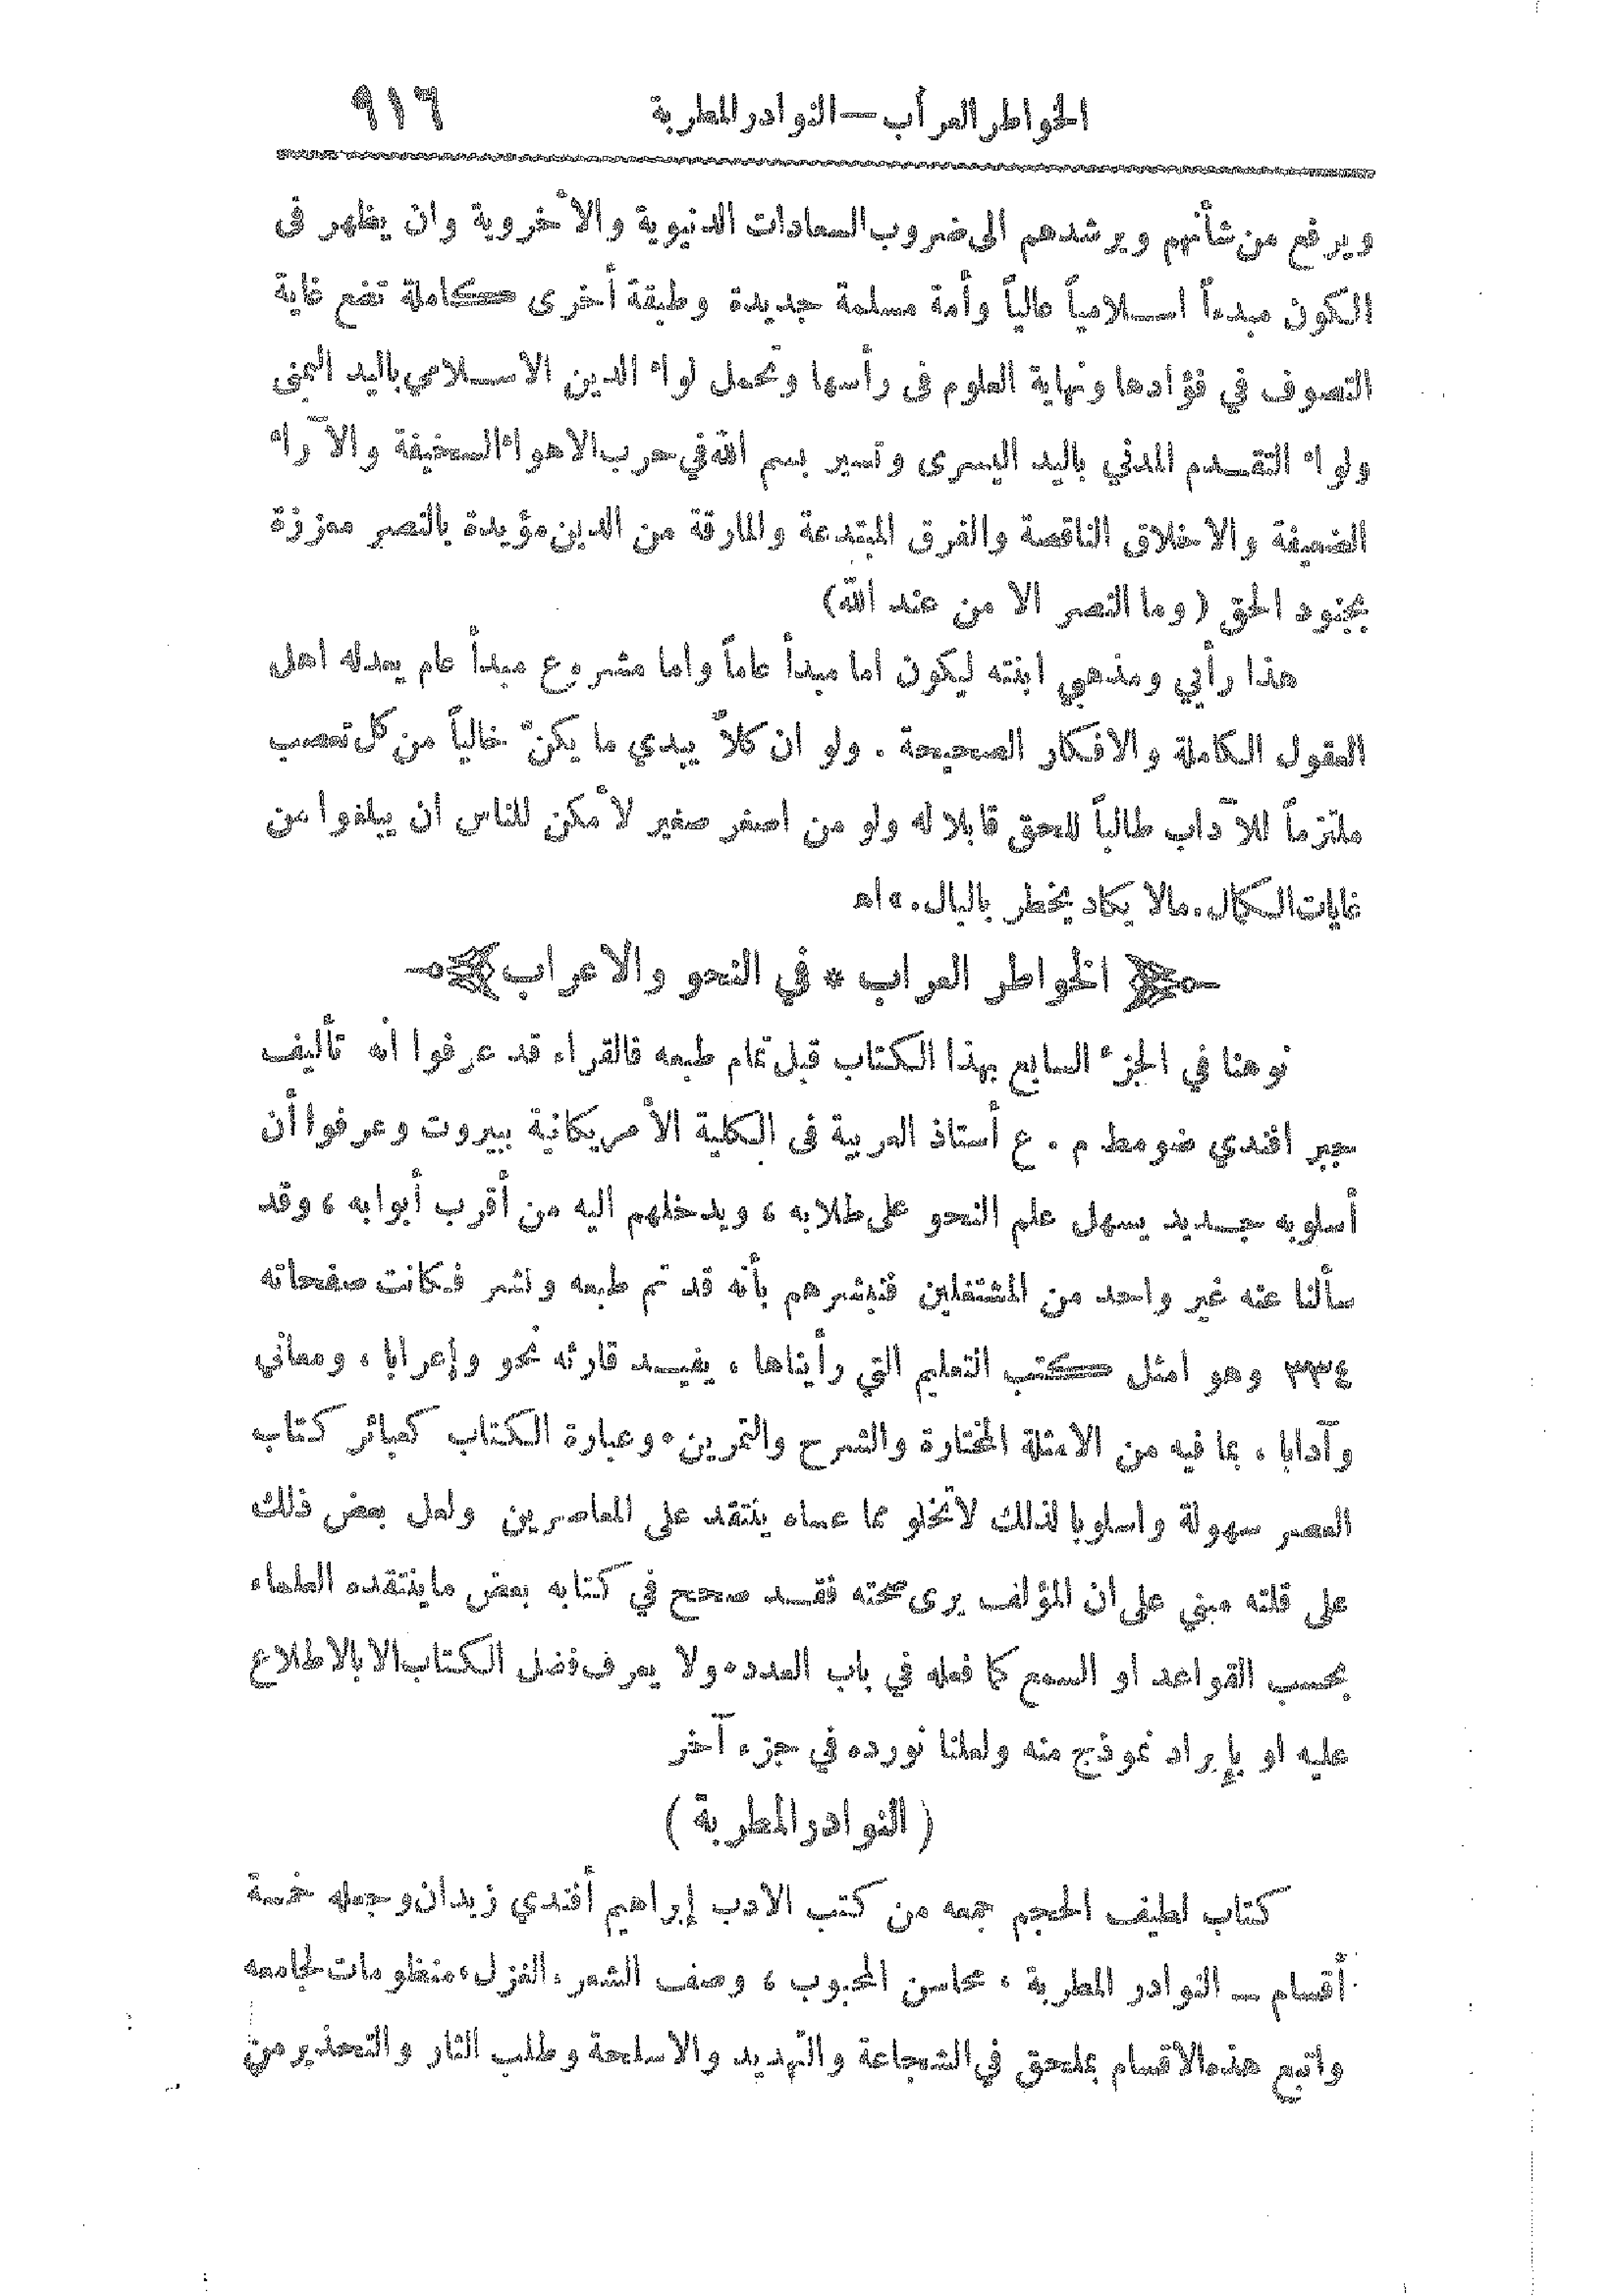 الخواطر العراب — النوادر المطربة ٩١٦
ويرفع من شأنهم ويرشدهم الى ضروب السعادات الدنيوية والأخروية وان يظهر فى
الكون مبدءاً اسلامياً عالياً وأمة مسلمة جديدة وطبقة أخرى كاملة تضع غاية
التصوف في فؤادها ونهاية العلوم فى رأسها وتحمل لواء الدين الاسلامي باليد اليمنى
ولواء التقدم المدني باليد اليسرى وتسير بسم الله في حرب الاهواء السخيفة والآراء
الضعيفة والاخلاق الناقصة والفرق المبتدعة والمارقة من الدين مؤيدة بالنصر معززة
بجنود الحق (وما النصر الا من عند الله)
هذا رأيي ومذهبي ابنته ليكون اما مبدأ عاماً واما مشروع مبدأ عام يعدله اهل
العقول الكاملة والافكار الصحيحة . ولو ان كلاً يبدي ما يكنّ خالياً من كل تعصب
ملتزماً للآداب طالباً للحق قابلا له ولو من اصغر صغير لأمكن للناس أن يبلغوا من
غايات الكمال . مالا يكاد يخطر بالبال . » اه
الخواطر العراب * في النحو والاعراب
نوهنا في الجزء السابع بهذا الكتاب قبل تمام طبعه فالقراء قد عرفوا أنه تأليف
جبر افندي ضومط م . ع أستاذ العربية فى الكلية الأمريكانية ببيروت وعرفوا أن
أسلوبه جديد يسهل علم النحو على طلابه ، ويدخلهم اليه من أقرب أبوابه ، وقد
سألنا عنه غير واحد من المشتغلين فنبشرهم بأنه قد تم طبعه ونشر فكانت صفحاته
٣٣٤ وهو امثل كتب التعليم التي رأيناها ، يفيد قارئه نحو وإعرابا ، ومعاني
وآدابا ، بما فيه من الامثلة المختارة والشرح والتمرين . وعبارة الكتاب كسائر كتاب
العصر سهولة واسلوبا لذلك لا تخلو مما عساه ينتقد على المعاصرين ولعل بعض ذلك
على قلته مبني على ان المؤلف يرى صحته فقد صحح في كتابه بعض ما ينتقده العلماء
بحسب القواعد او السمع كما فعله في باب العدد . ولا يعرف فضل الكتاب الا بالاطلاع
عليه او بإيراد نموذج منه ولعلنا نورده في جزء آخر
( النوادر المطربة )
كتاب لطيف الحجم جمعه من كتب الادب إبراهيم أفندي زيدان وجعله خمسة
أقسام — النوادر المطربة ، محاسن المحبوب ، وصف الشعر ، الغزل ، منظومات لجامعه
واتبع هذه الاقسام بملحق في الشجاعة والتهديد والاسلحة وطلب الثار والتحذير من